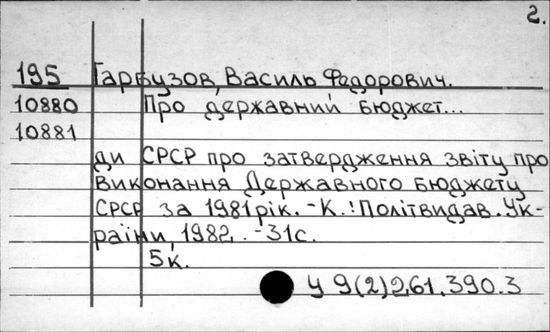 2.
195 Гарбузов, Василь Федорович.
10880 Про державний бюджет...
10881
ди СРСР про затвердження звіту про
виконання Державного бюджету
СРСР за 1981 рік. - К.: Політвидав. Ук-
раїни, 1982. - 31с.
5к.
У 9(2)261.390.3